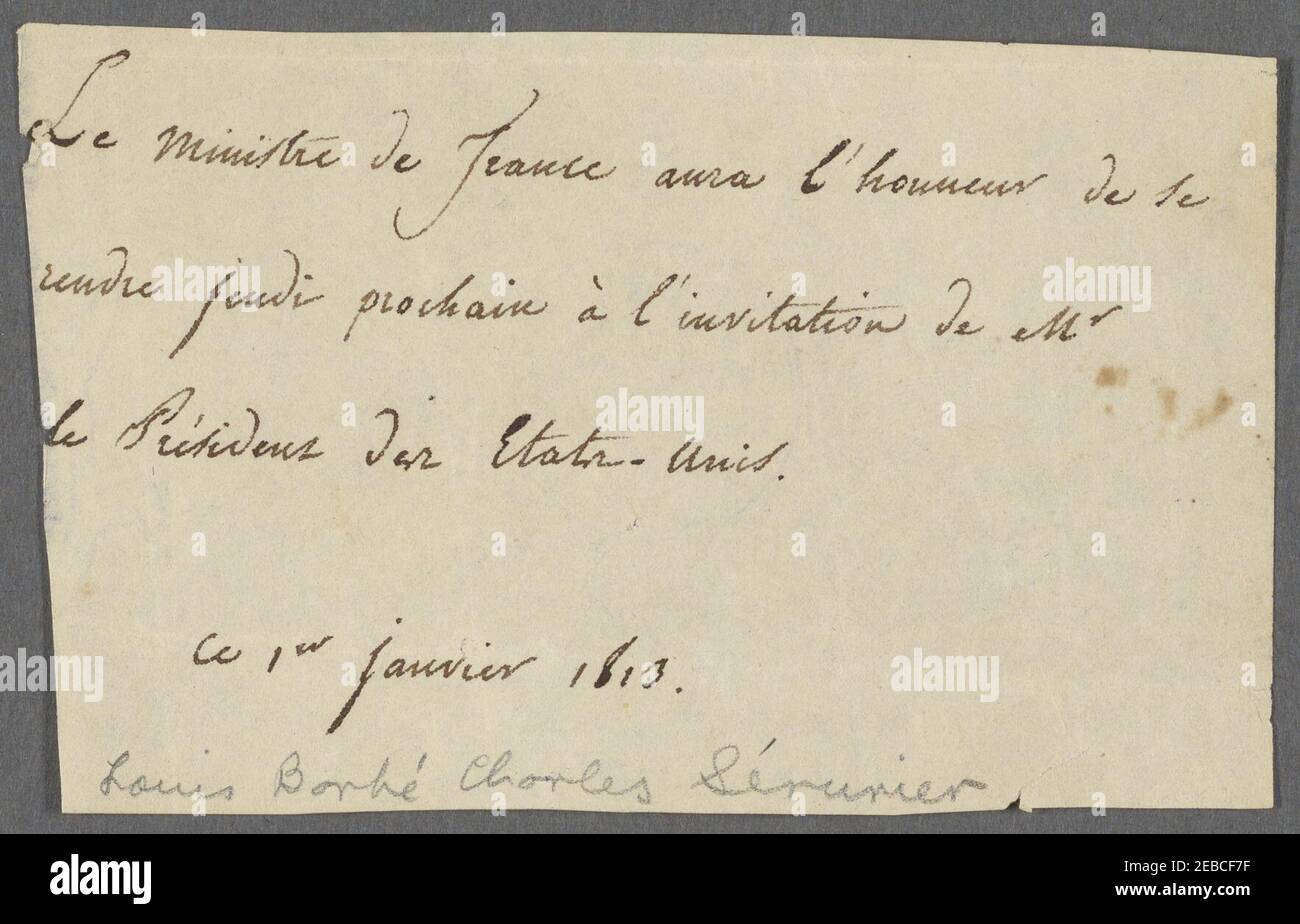 Le Ministre de France aura l'honneur de se
rendre jeudi prochain à l'invitation de Mr
le Président des Etats-Unis.
ce 1er janvier 1813.
Louis Barbé Charles Sérurier
alamy
Image ID: 2EBCF7F
www.alamy.com